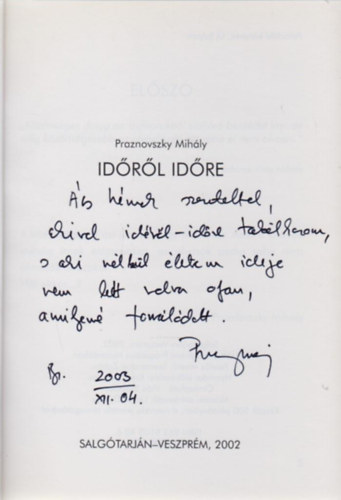 Praznovszky Mihály
IDŐRŐL IDŐRE
Ács Németh szeretettel,
akivel időről-időre találkozom,
s aki nélkül életem ideje
nem lett volna olyan,
amilyenné formálódott.
Bp. 2003
XII. 04.
SALGÓTARJÁN–VESZPRÉM, 2002